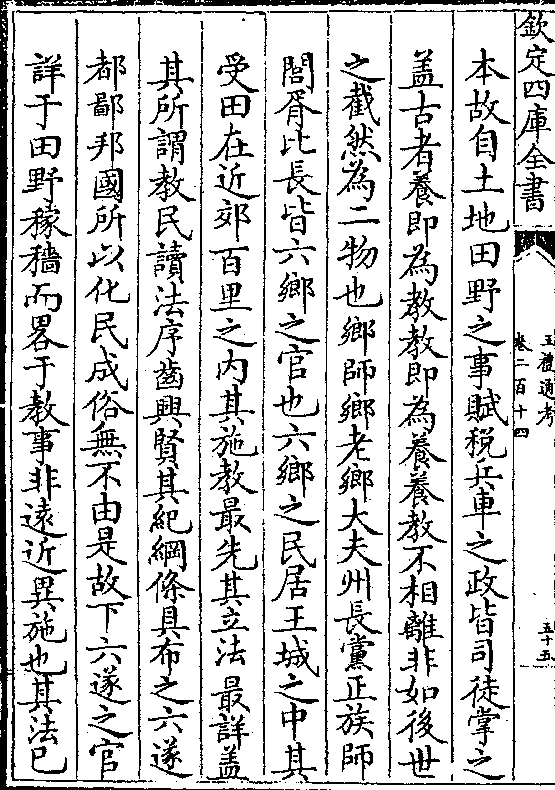 欽定四庫全書
五禮通考
卷二百十四
五十五
本故自土地田野之事賦税兵車之政皆司徒掌之
盖古者養即為教教即為養養教不相離非如後世
之截然為二物也鄉師鄉老鄉大夫州長黨正族師
閭胥比長皆六鄉之官也六鄉之民居王城之中其
受田在近郊百里之内其施教最先其立法最詳盖
其所謂教民讀法序齒興賢其紀綱條具布之六遂
都鄙邦國所以化民成俗無不由是故下六遂之官
詳于田野稼穡而畧于教事非逺近異施也其法已